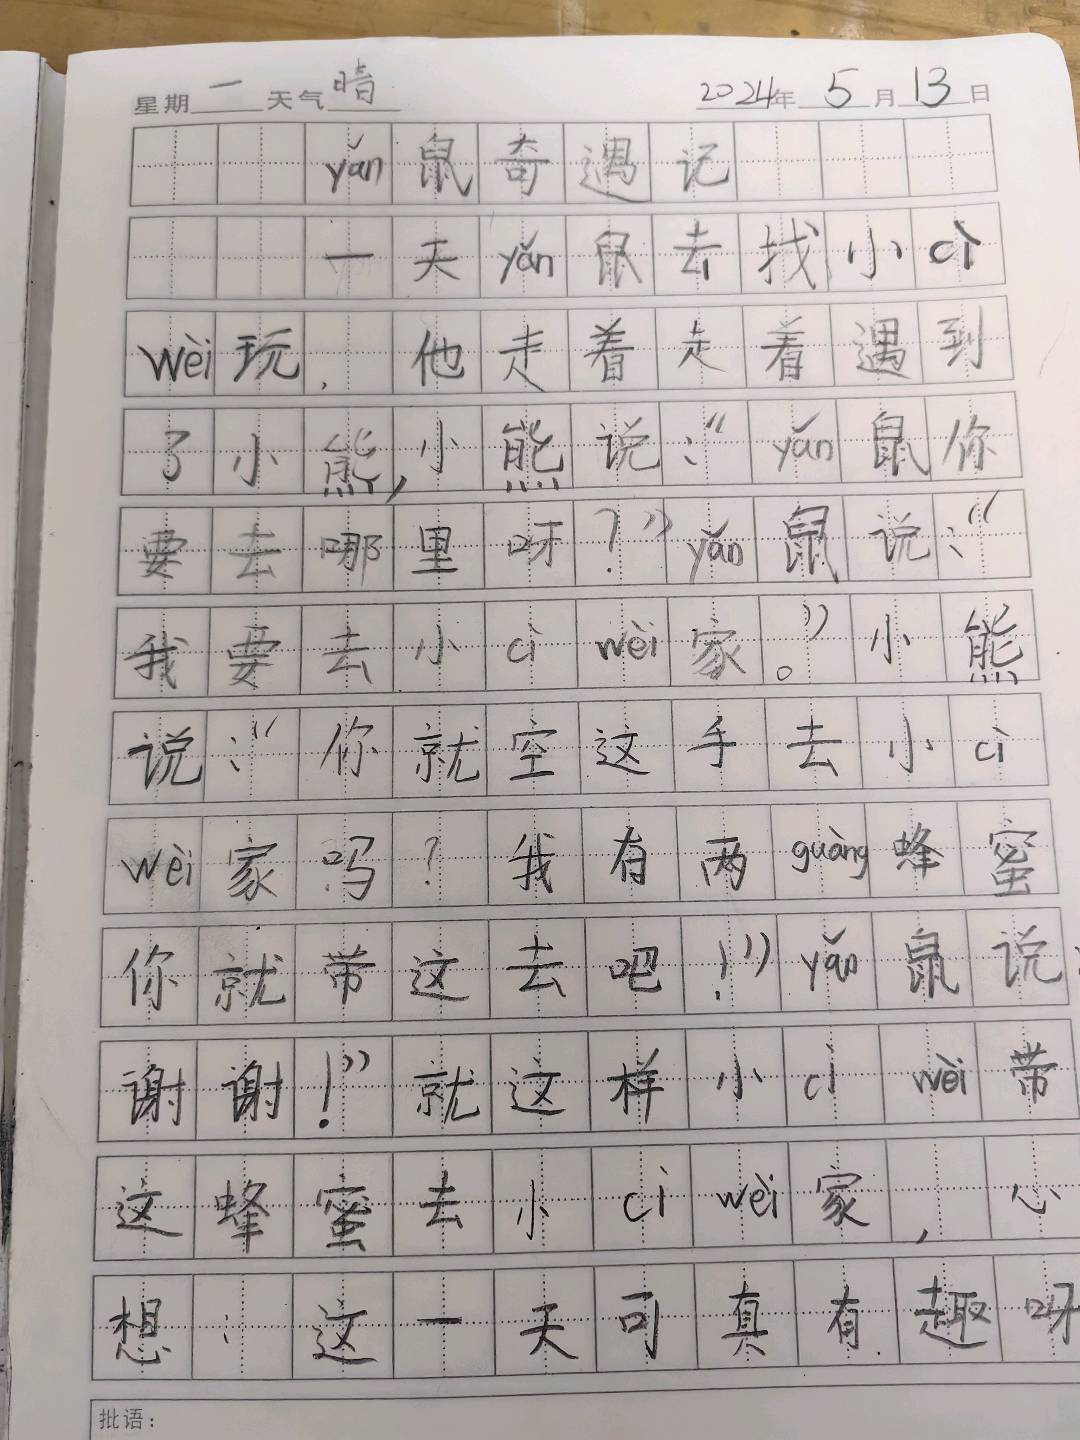 星期一 天气晴 2024年5月13日
yǎn鼠奇遇记
一天yǎn鼠去找小cì
wèi玩，他走着走着遇到
了小熊，小熊说：“yǎn鼠你
要去哪里呀？”yǎn鼠说：“
我要去小cì wèi家。”小熊
说：“你就空这手去小cì
wèi家吗？我有两guàng蜂蜜
你就带这去吧！”yǎn鼠说：
谢谢！”就这样小cì wèi带
这蜂蜜去小cì wèi家，心
想：这一天可真有趣呀
批语：